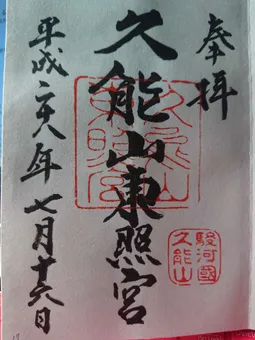 奉拝
久能山東照宮
平成二十八年七月十六日
駿河國
久能山